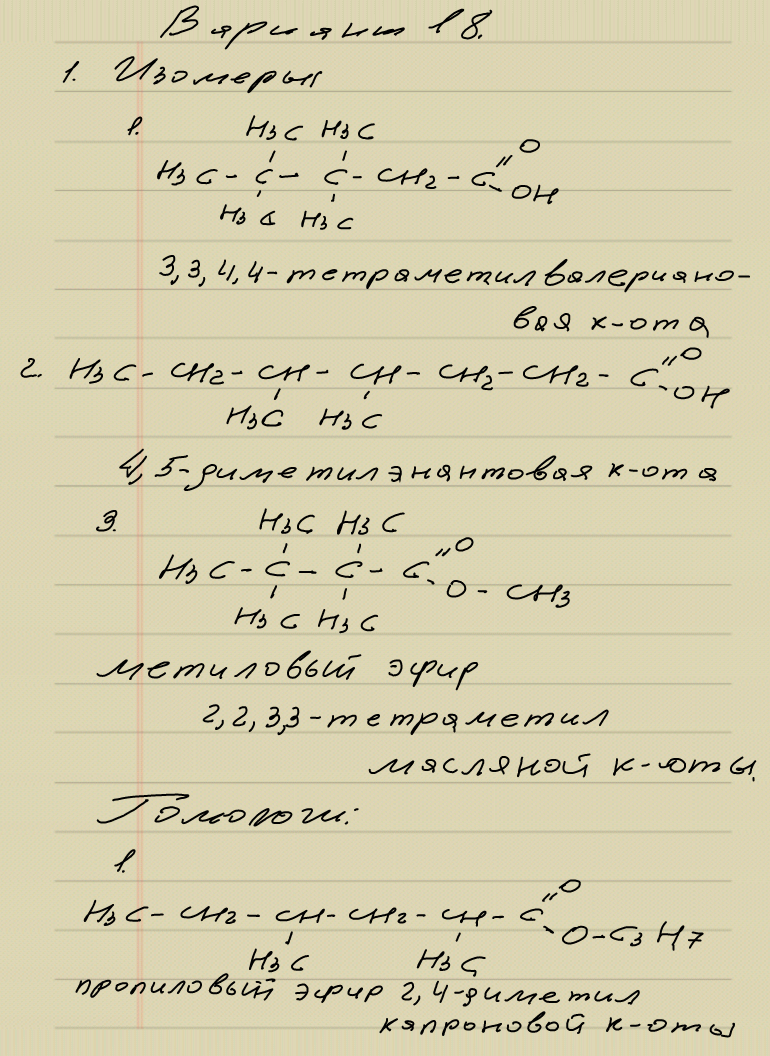 Вариант 18.
1. Изомеры
1. H3C H3C
H3C - C - C - CH2 - C = O
- OH
H3C H3C
3,3,4,4-тетраметилвалериано-
вая к-ота
2. H3C - CH2 - CH - CH - CH2 - CH2 - C = O
- OH
H3C H3C
4,5-диметилэнантовая к-ота
3. H3C H3C
H3C - C - C - C = O
- O - CH3
H3C H3C
метиловый эфир
2,2,3,3-тетраметил
масляной к-оты.
Гомологи:
1.
H3C - CH2 - CH - CH2 - CH - C = O
- O - C3H7
H3C H3C
пропиловый эфир 2,4-диметил
капроновой к-оты